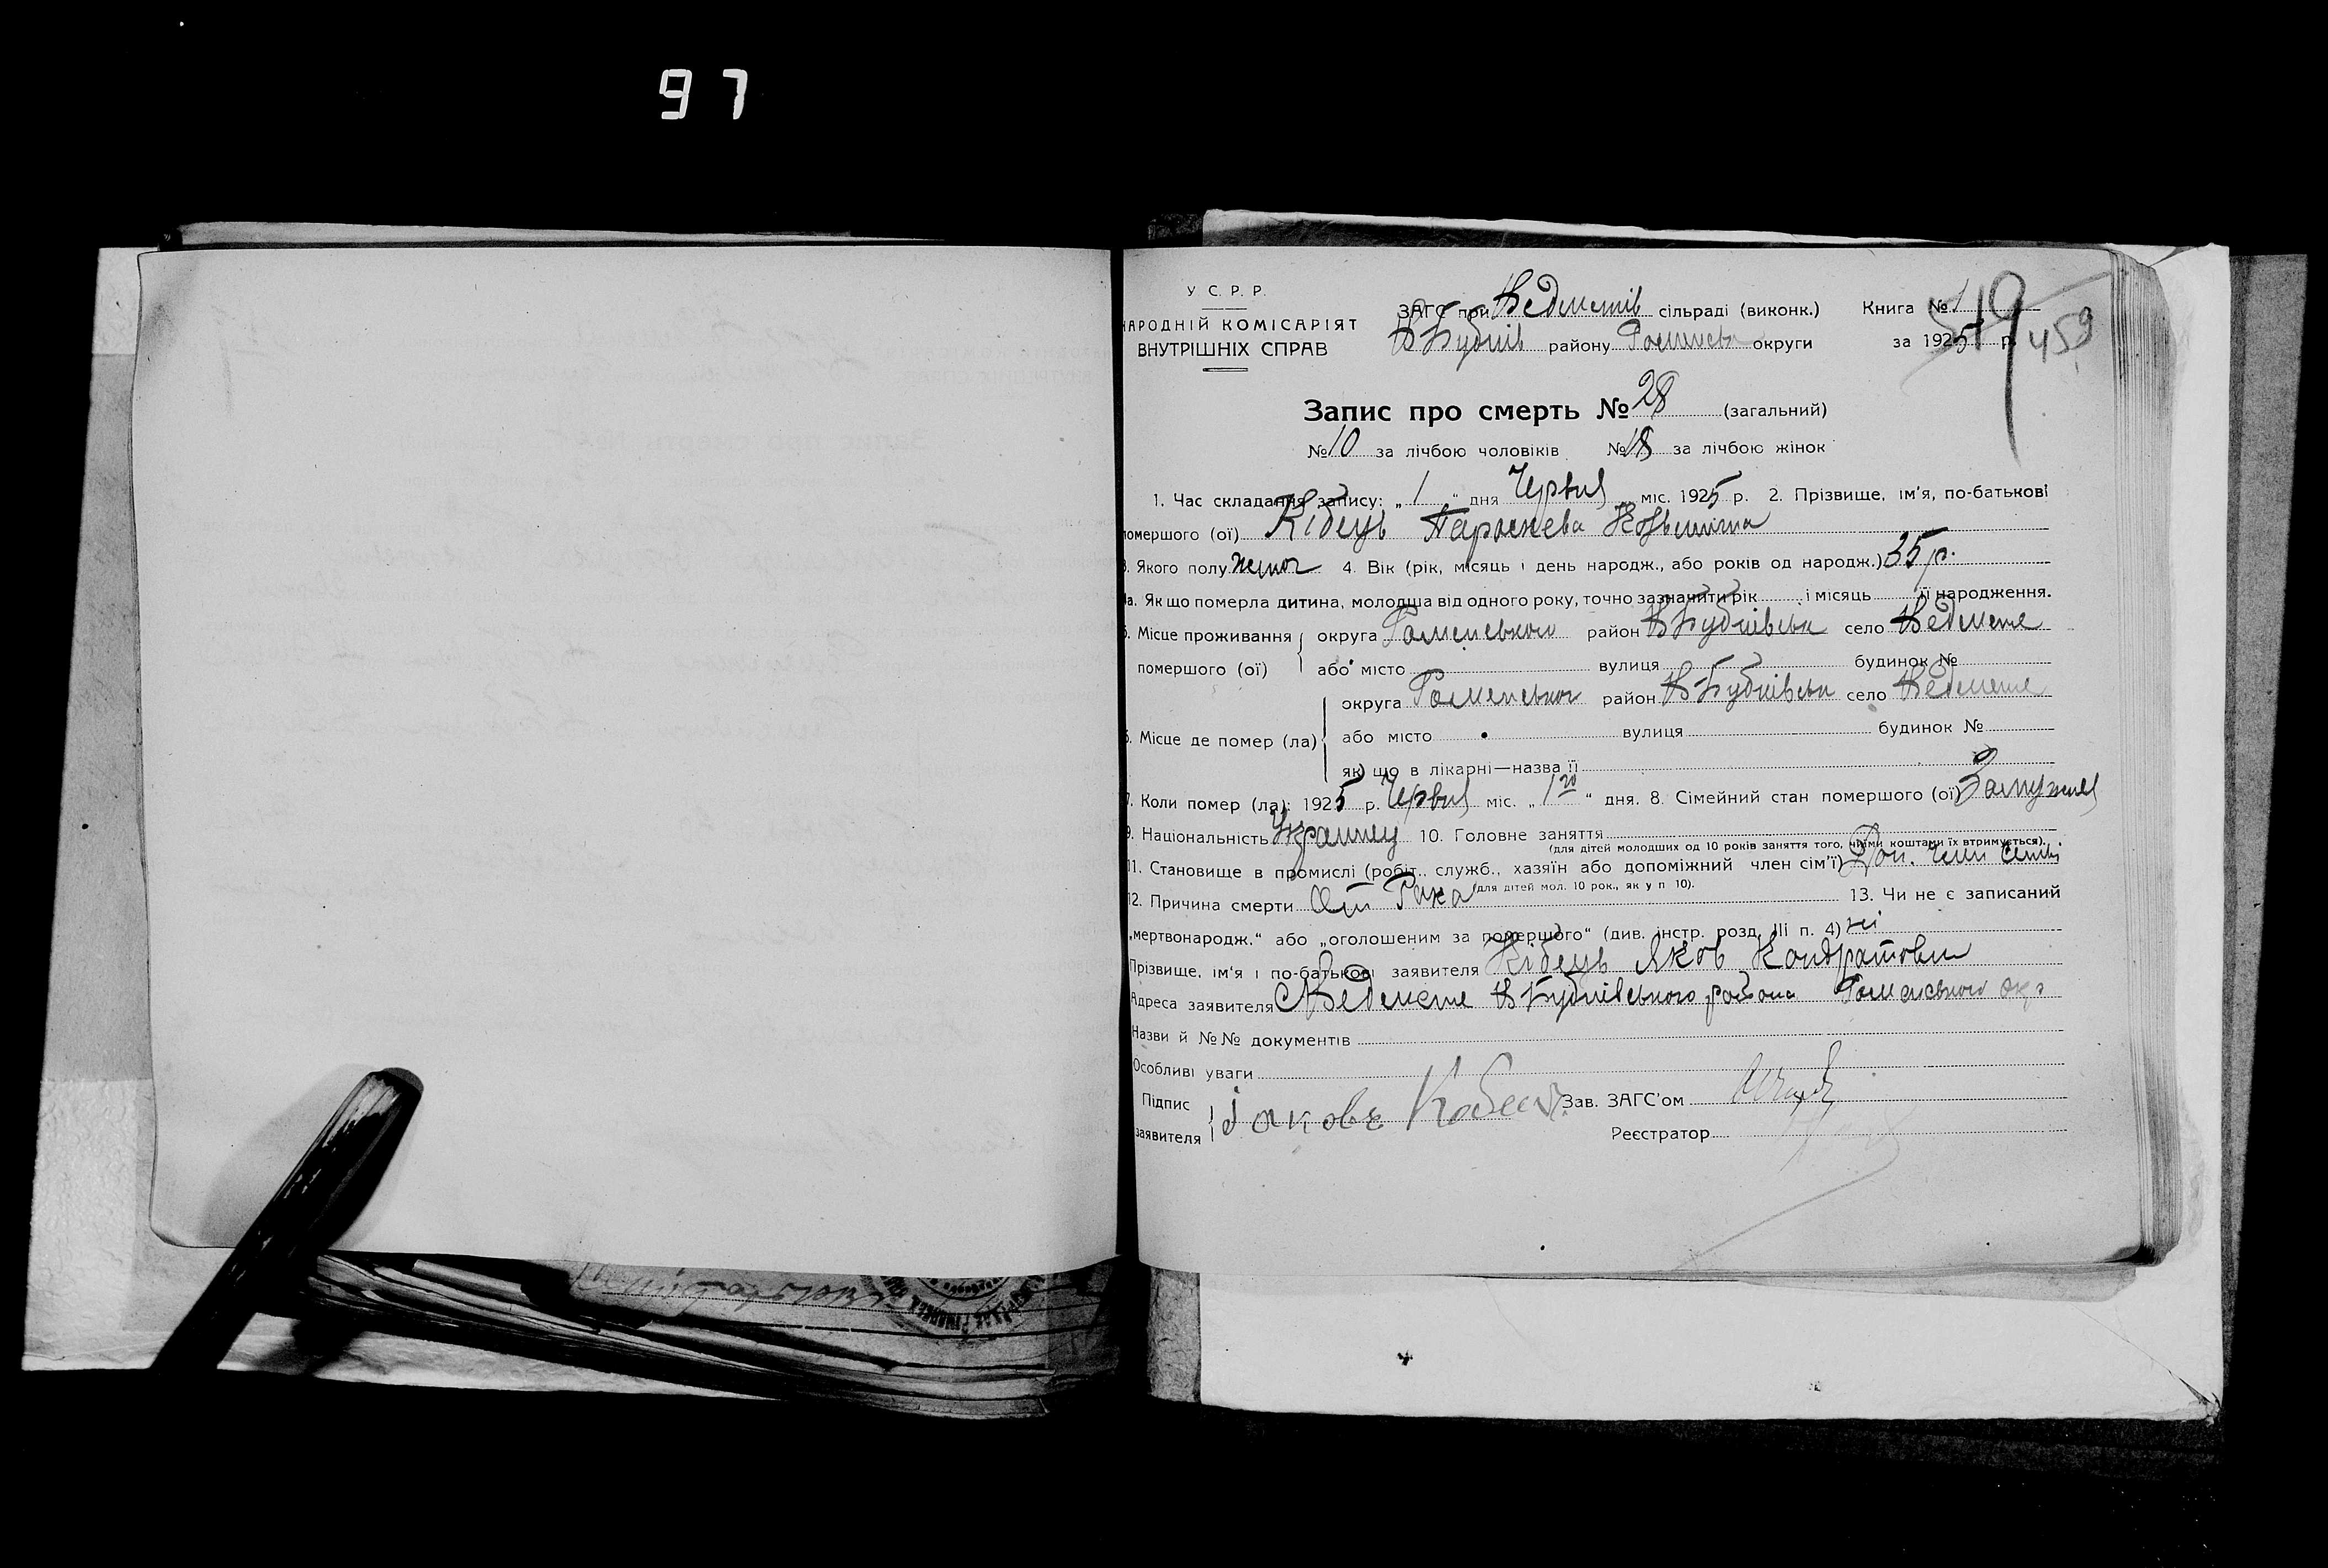 97
У С. Р. Р.
НАРОДНІЙ КОМІСАРІЯТ
ВНУТРІШНІХ СПРАВ
ЗАГС при Ведметів сільраді (виконк.) Книга № 1
В Бубнів району Роменсько округи за 1925 р.
459
Запис про смерть № 28 (загальний)
№ 10 за лічбою чоловіків № 18 за лічбою жінок
1. Час складання запису: „ 1 “ дня Червня міс. 1925 р. 2. Прізвище, ім'я, по-батькові
помершого (ої) Кібець Параскева
3. Якого полу жіноч 4. Вік (рік, місяць і день народж., або років од народж.) 35 р.
4а. Як що померла дитина, молодша від одного року, точно зазначити рік і місяць її народження.
5. Місце проживання округа Роменського район В Бубнівськи село Ведмеже
помершого (ої) або місто вулиця будинок №
округа Роменськог район В Бубнівськи село Ведмеже
6. Місце де помер (ла) або місто вулиця будинок №
як) що в лікарні—назва її
7. Коли помер (ла): 1925 р. Червня міс. „ 1го “ дня. 8. Сімейний стан помершого (ої) Замужня
9. Національність Украинец 10. Головне заняття
(для дітей молодших од 10 років заняття того, чиїми коштами їх втримується).
11. Становище в промислі (робіт., служб., хазяїн або допоміжний член сім'ї) Доп. член семьі
(для дітей мол. 10 рок., як у п 10).
12. Причина смерти От Рака 13. Чи не є записаний
„мертвонародж.“ або „оголошеним за помершого“ (див. інстр. розд. III п. 4) ні
Прізвище, ім'я і по-батькові заявителя Кібець Яков Кондратови
Адреса заявителя С Ведмеже В Бубнівського района Роменського окр
Назви й №№ документів
Особливі уваги
Підпис
заявителя
Іаковъ
Зав. ЗАГС'ом
Реєстратор